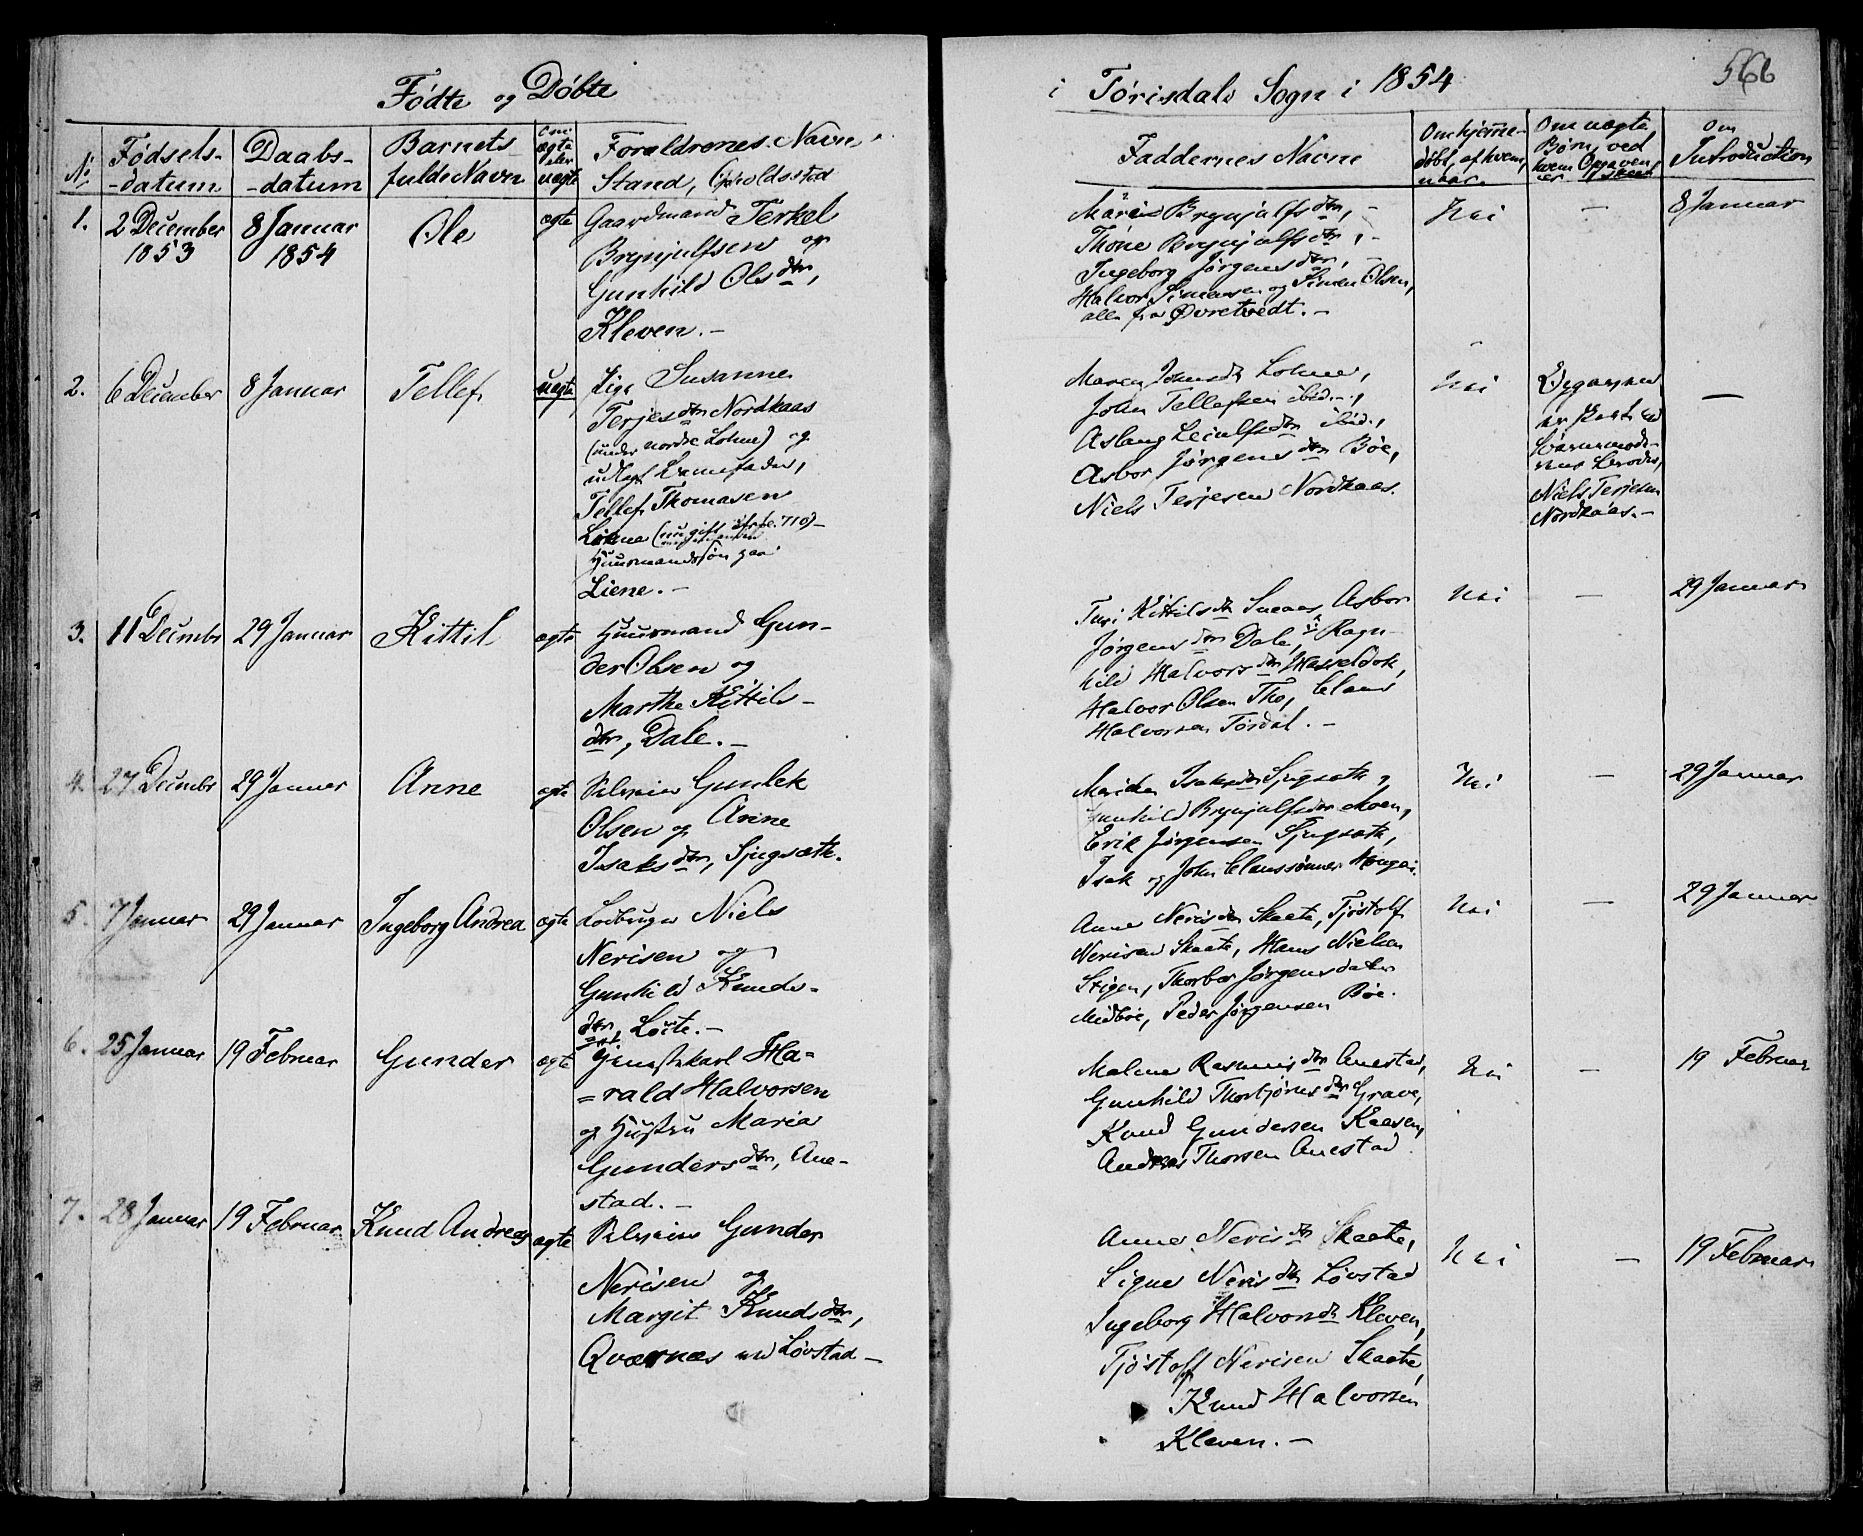 Fødte og Døbte
i Tørisdals Sogn i 1854
566
No Fødsels-datum Daabs-datum Barnets fulde Navn Om ægte eller uægte Forældrenes Navn, Stand, Opholdssted
Faddernes Navne Om hjemmedøbt, af hvem, naar. Om uægte Børn, ved hvem Opgaven er skeet Om Introduction
1. 2 December 1853 8 Januar 1854 Ole ægte
Gaardmand Terkel
Brynjulfsen og
Gunhild Olsdtr,
Kleven.-
Brynjulfsdtr, -
Thone Brynjulfsdtr, -
Ingeborg Jørgensdtr, -
Halvor Simensen og Simen Olsen,
alle fra Øvretvedt. -
Nei - 8 Januar
2. 6 December 8 Januar Tellef uægte
Pige Susanne
Terjesdtr Nordkaas
(under nordre Lohne) og
udlagt Barnefader,
Tellef Thomasen
Huusmandssøn paa
Liene. -
Maren Johnsdtr Lohne,
John Tellefsen ibid.,
Aslaug Leiulfsdtr ibid.,
Asbor Jørgensdtr Bøe,
Niels Terjesen Nordkaas.
Nei
Opgaven
er skeet ved
Barnemode-
rens Broder,
Niels Terjesen
Nordkaas. -
-
3. 11 Decembr 29 Januar Kittil ægte
Huusmand Gun-
der Olsen og
Marthe Kittils-
dtr, Dale. -
Turi Kittilsdtr Asbor
Jørgensdtr Dale, Ragn-
hild Halvorsdtr
Halvor Olsen Tho, Claus
Halvorsen Tørdal. -
Nei - 29 Januar
4. 27 Decembr 29 Januar Anne ægte
Selveier Gunlek
Olsen og Anne
Isaksdtr, Sjugsæth.
Isaksdtr Sjugsæth,
Gunhild Brynjulfsdtr Moen,
Erik Jørgensen Sjugsæth,
Isak og John Clausssønner
Nei - 29 Januar
5. 7 Januar 29 Januar Ingeborg Andrea ægte
Lodbruger Niels
Nerisen og
Gunhild Knuds-
dtr,
Anne Nerisdtr Skaate, Tjøstolf
Nerisen Skaate, Hans Nielsen
Stigen, Thorbor Jørgensdatter
Midbøe, Peder Jørgensen Bøe.
Nei - 29 Januar
6. 25 Januar 19 Februar Gunder ægte
Tjenestekarl Ha-
=rald Halvorsen
og Hustru Maria
Gundersdtr, Ane-
stad. -
Malene Rasmusdtr Anestad,
Gunhild Thorbjørnsdtr Grave,
Knud Gundersen Kaasen,
Andreas Thorsen Anestad
Nei - 19 Februar
7. 28 Januar 19 Februar Knud Andreas ægte
Selveier Gunder
Nerisen og
Margit Knudsdtr,
Qværnæs ved Løvstad -
Anne Nerisdtr Skaate,
Signe Nerisdtr Løvstad
Ingeborg Halvorsdtr Kleven,
Tjøstolf Nerisen Skaate,
Knud Halvorsen
Kleven. -
Nei - 19 Februar